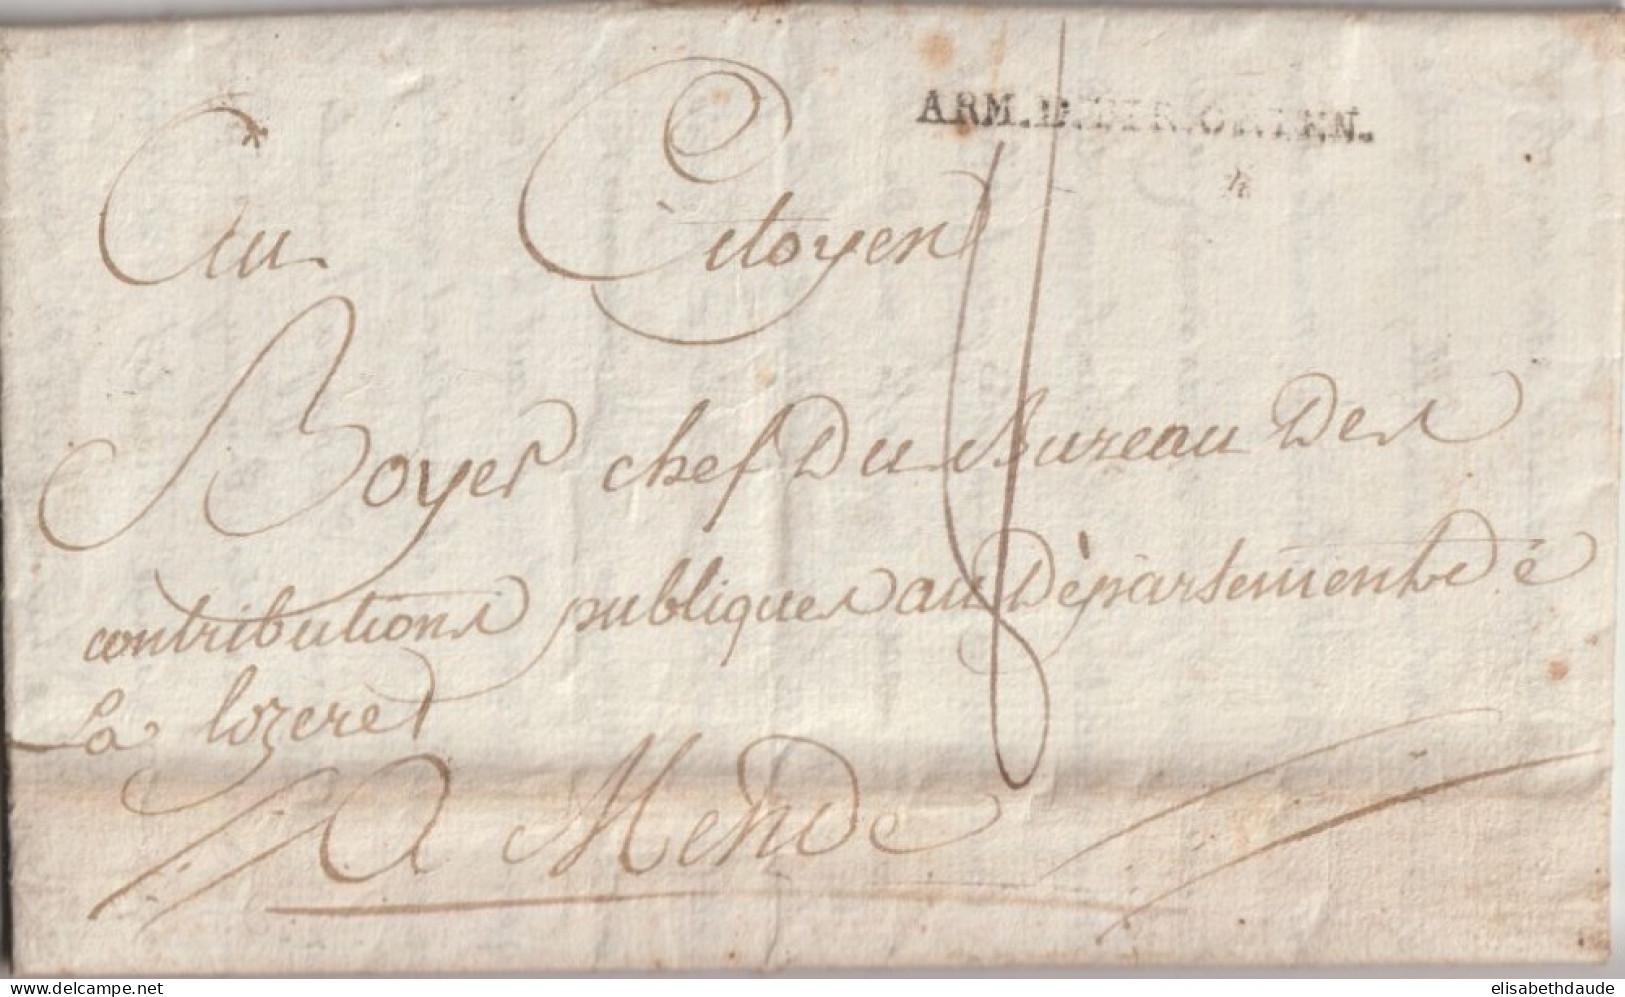 ARM. D. PYR. ORIEN.
Au Citoyen
Boyer chef Du Bureau Des
contributions publiques au Département dé
La lozere
A Mende
delcampe.net
elisabethdaude